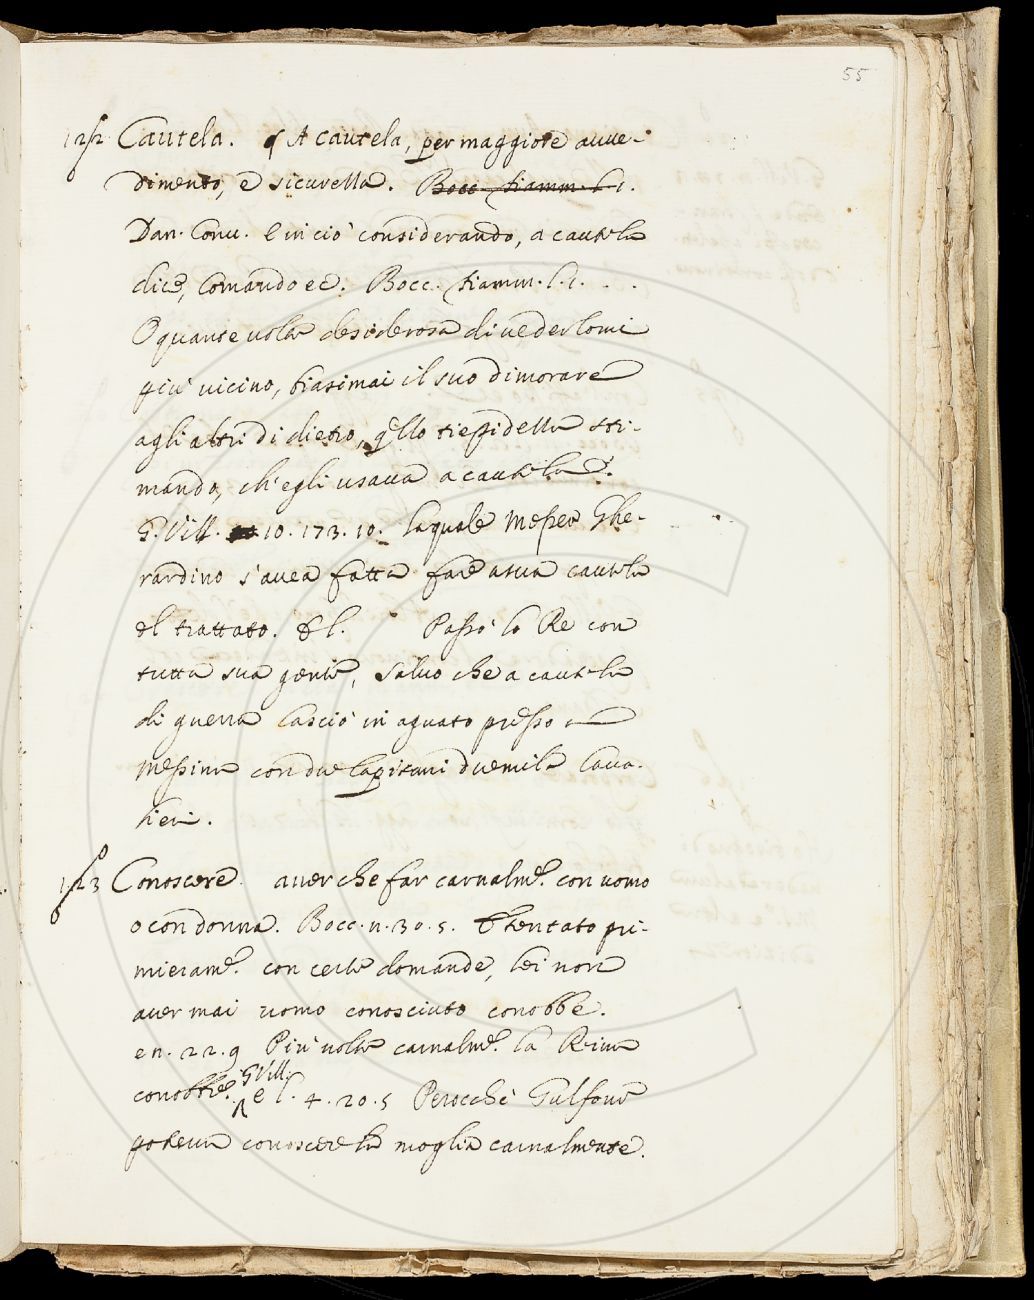 55
Cautela. § A cautela, per maggiore avve-
dimento, e sicurezza. Bocc. fiamm. l. 1.
Dan. Conv. E in ciò considerando, a cautela
dice, Comando ec. Bocc. fiamm. l. 1. . .
O quante volte desiderosa di vederlomi
più vicino, biasimai il suo dimorare
agli altri di dietro, qllo tiepidella sti-
mando, ch'egli usava a cautela
G. Vill. 10. 173. 10. la quale Messer Ghe-
rardino s'avea fatta fare a sua cautela
el trattato. Passò lo Re con
tutta sua gente, salvo che a cautela
di guerra lasciò in aguato presso a
Messina con due Capitani duemila Cava-
lieri.
Conoscere. aver che far carnalmᵉ. con uomo
o con donna. Bocc. n. 30. 5. tentato pri-
mieramᵉ. con certe domande, lei non
aver mai uomo conosciuto conobbe.
e n. 22. 9 Più volte carnalmᵉ. la Reina
conobbe. G. Vill. l. 4. 20. 5 Perocchè Gulfone
poteva conoscere la moglie carnalmente.